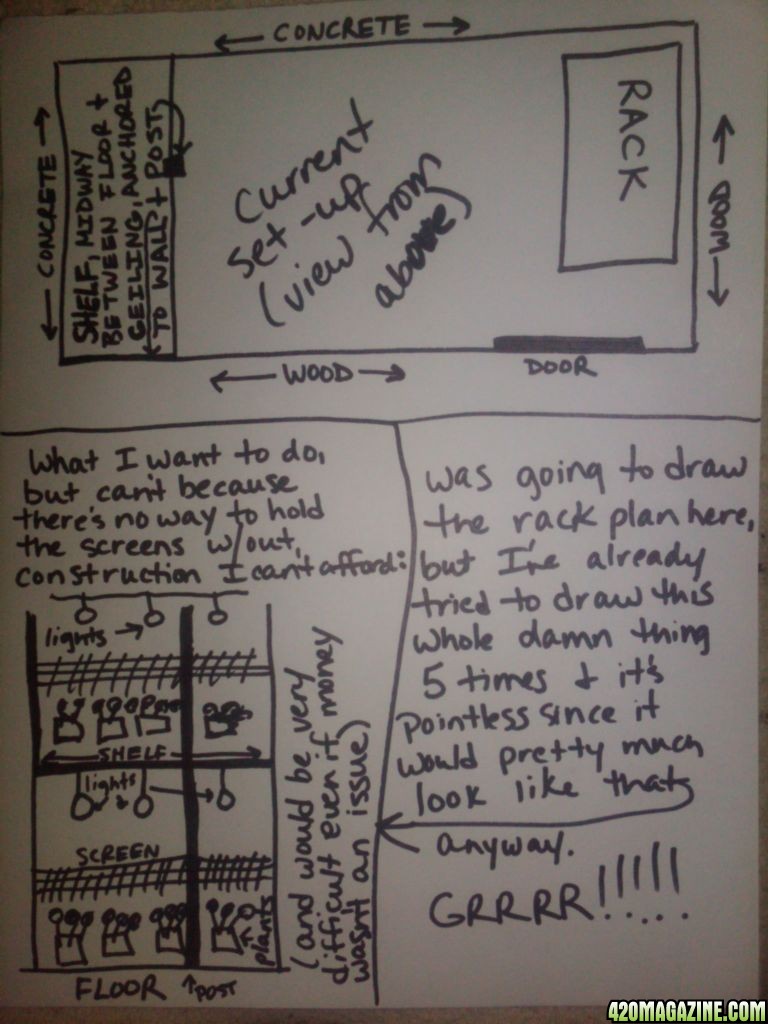 CONCRETE
CONCRETE
SHELF, MIDWAY
BETWEEN FLOOR +
CEILING, ANCHORED
TO WALL + POST
Current
set-up
(view from
above)
RACK
WOOD
WOOD
DOOR
What I want to do,
but can't because
there's no way to hold
the screens w/out
construction I can't afford:
lights
SHELF
lights
SCREEN
plants
FLOOR
POST
(and would be very
difficult even if money
wasn't an issue)
was going to draw
the rack plan here,
but I've already
tried to draw this
whole damn thing
5 times + it's
pointless since it
would pretty much
look like that
anyway.
GRRRR!!!!!
420MAGAZINE.COM